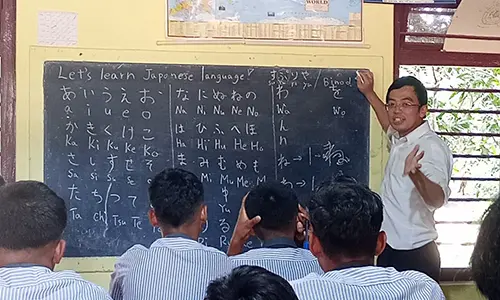 Let's learn Japanese language!
/ Binod
あ い う え お
a i u e o
か き く け こ
Ka Ki Ku Ke Ko
さ し す せ そ
Sa si Su Se So
た ち つ て
Ta chi Tsu Te
な に ぬ ね の
Na Ni Nu Ne No
は ひ ふ へ ほ
Ha Hi Hu He Ho
ま み む め も
Mi Mu Me Mo
Yu
る
Ri
わ を
Wa Wo
ん
n
ね → 1 →
→ 1
WORLD